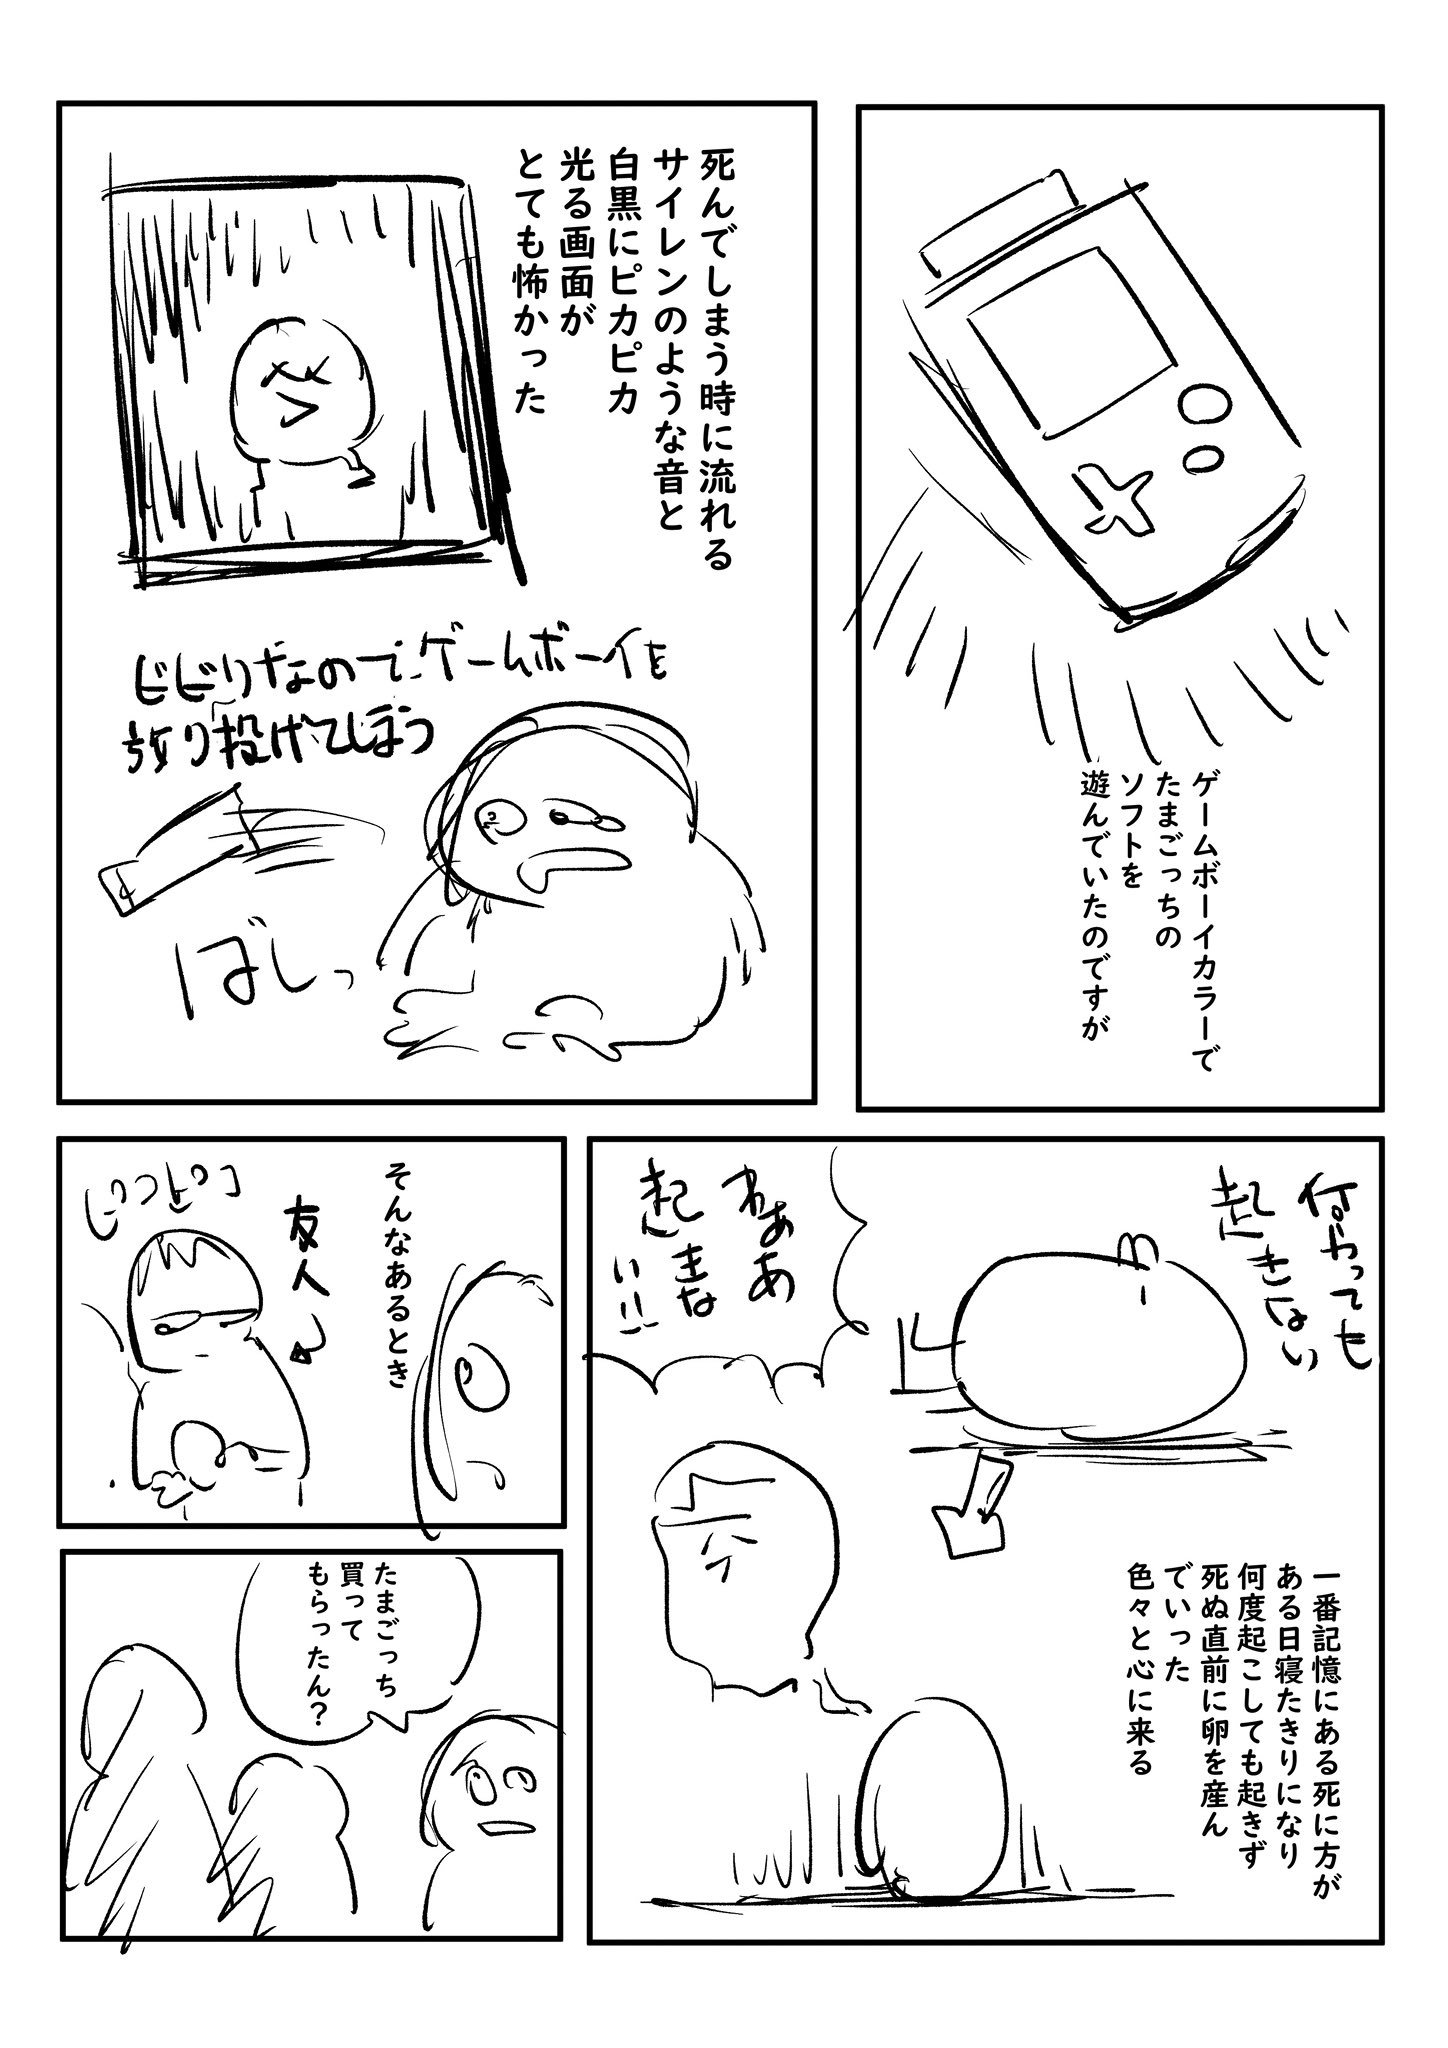 ゲームボーイカラーで
たまごっちの
ソフトを
遊んでいたのですが
死んでしまう時に流れる
サイレンのような音と
白黒にピカピカ
光る画面が
とても怖かった
ビビりなのでゲームボーイを
放り投げてしまう
ばしっ
何やっても
起きない
わああ
起きな
い!!
一番記憶にある死に方が
ある日寝たきりになり
何度起こしても起きず
死ぬ直前に卵を産ん
でいった
色々と心に来る
そんなあるとき
友人
ピコピコ
たまごっち
買って
もらったん？